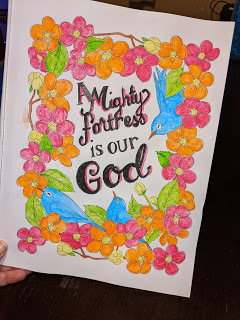 A Mighty
fortress
is our
God